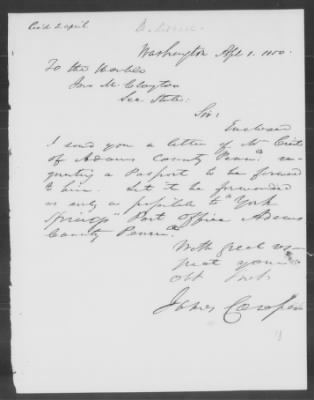 Rec'd 2 april
Washington Apl 1. 1850.
To the Honble
Jno M. Clayton
Sec. State:
Sir:
Enclosed
I send you a letter of Mr
of Adams County Penna. re-
questing a Passport to be forwd
to him. Let it be forwarded
as early as possible to "York
Springs" Post Office Adams
County Penna.
With great res-
pect your
obt Servt
James Cooper